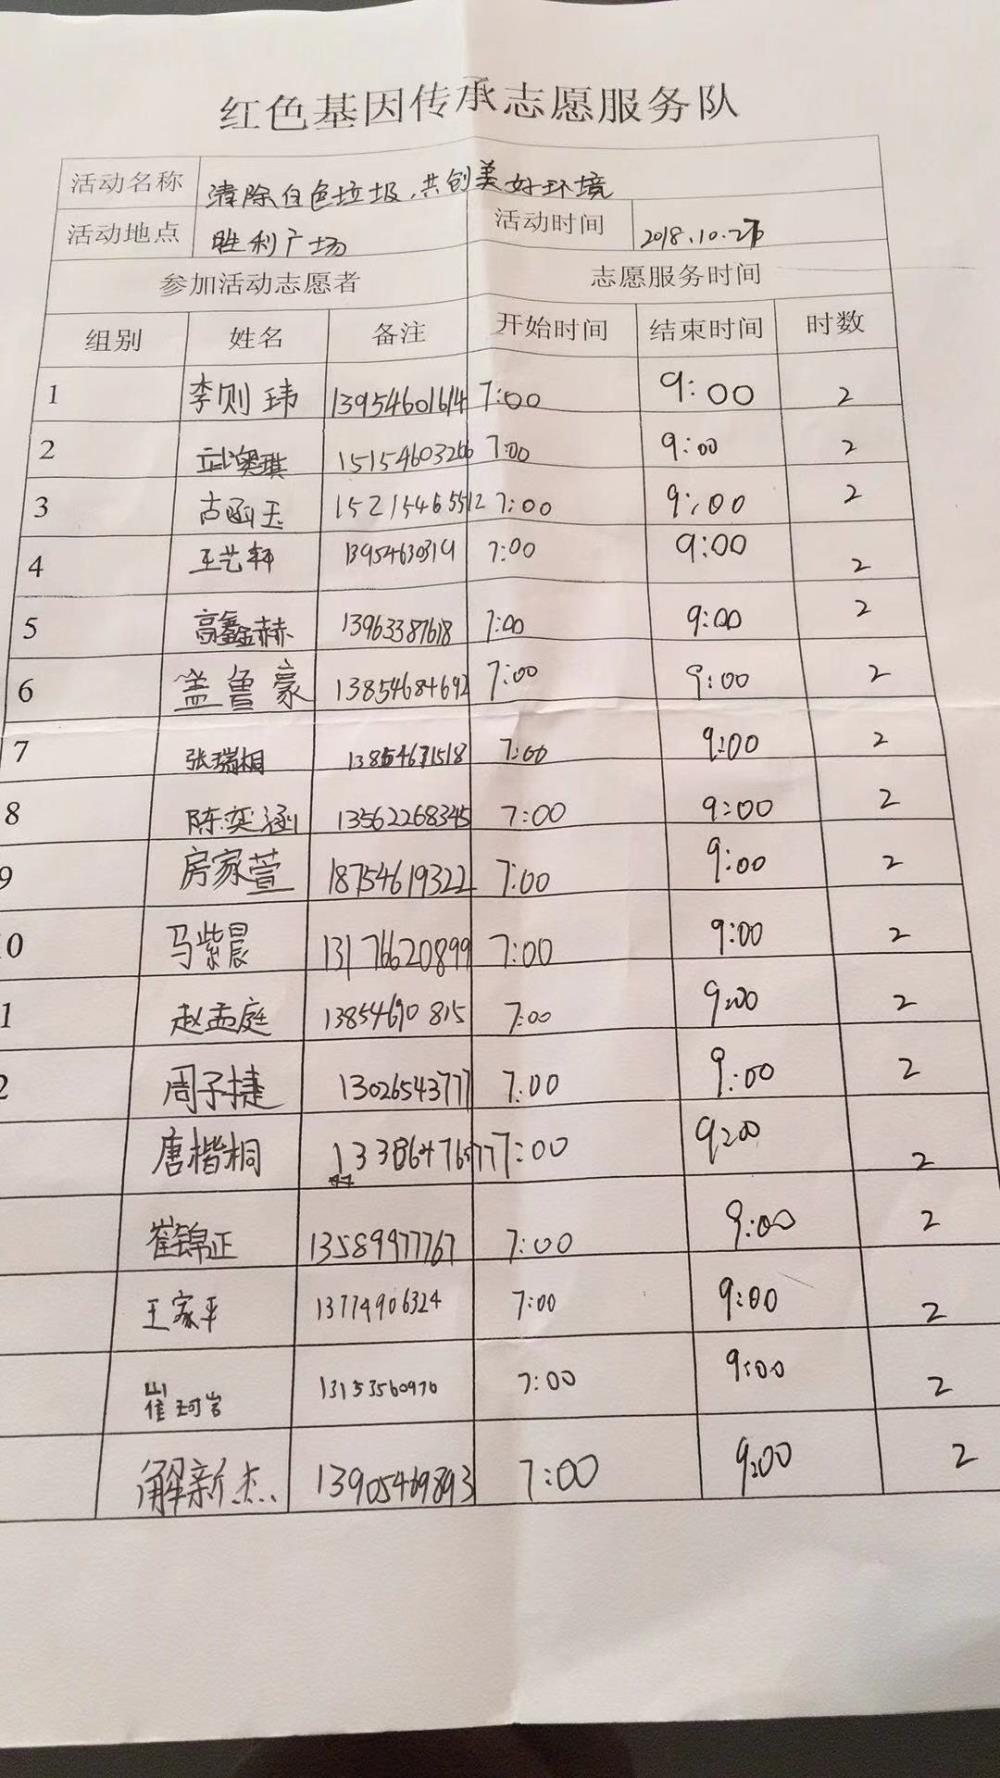 红色基因传承志愿服务队
活动名称 清除白色垃圾,共创美好环境
活动地点 胜利广场 活动时间
参加活动志愿者 志愿服务时间
组别 姓名 备注 开始时间 结束时间 时数
1 李则玮 13954601614 7:00 9:00 2
2 武澳琪 7:00 9:00 2
3 古函玉 15215465512 7:00 9:00 2
4 王艺轩 7:00 9:00 2
5 高鑫赫 13963387618 7:00 9:00 2
6 盖鲁豪 13854684692 7:00 9:00 2
7 张瑞相 7:00 9:00 2
8 陈奕涵 13562268345 7:00 9:00 2
9 房家萱 18754619322 7:00 9:00 2
0 马紫晨 13176620899 7:00 9:00 2
1 赵孟庭 13854690815 7:00 9:00 2
2 周子捷 13026543777 7:00 9:00 2
唐楷桐 7:00 9:00 2
崔锦正 13589977767 7:00 9:00 2
王家平 13774906324 7:00 9:00 2
崔珂岩 13153560970 7:00 9:00 2
解新杰 13905469893 7:00 9:00 2